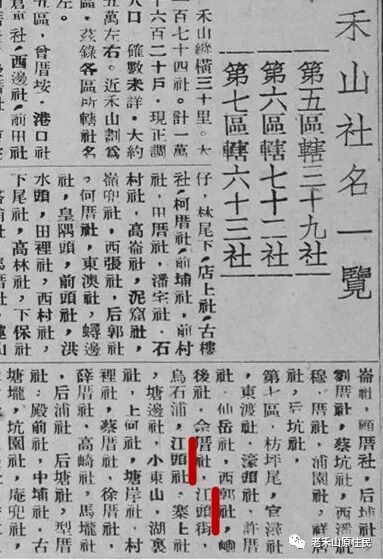 禾山社名一覽
第五區轄三十九社
第六區轄七十二社
第七區轄六十三社
禾山縱橫三十里。大
一百七十四社。計一萬
六百二十戶。現正調
人口。確數未詳。大約
五萬左右。近禾山劃為
區。茲錄各區所轄社名
左。
五區，曾厝垵，港口社
社，西邊社，前田社
仔，林尾下，店上社，古樓
社，柯厝社，前埔社，前村
社，田厝社，潘宅社，石
村社，高崙社，泥窟社，
嶺兜社，西張社，后郭社
，何厝社，東澳社，蟳邊
社，皇隅頭，前頭社，洪
水頭，田裡社，西村社，
下尾社，高林社，下保社
崙社，顧厝社，后坑社
劉厝社，蔡坑社，西潘
穆厝社，浦園社，祥
社，坑社
第七區，枋坪尾，官潯社
，東渡社，濠頭社，許厝
社，仙岳社，西郭社，嶼
後社，佘厝社，江頭街
烏石浦，江頭社，寨上社
，塘邊社，小東山，湖裏
社，上何社，塘岸社，村
裡社，蔡厝社，徐厝社
薛厝社，高崎社，馬壠社
，后浦社，后塘社，型厝
社，殿前社，中埔社，古
塘壠，坑園社，庵兜社，
老禾山原住民